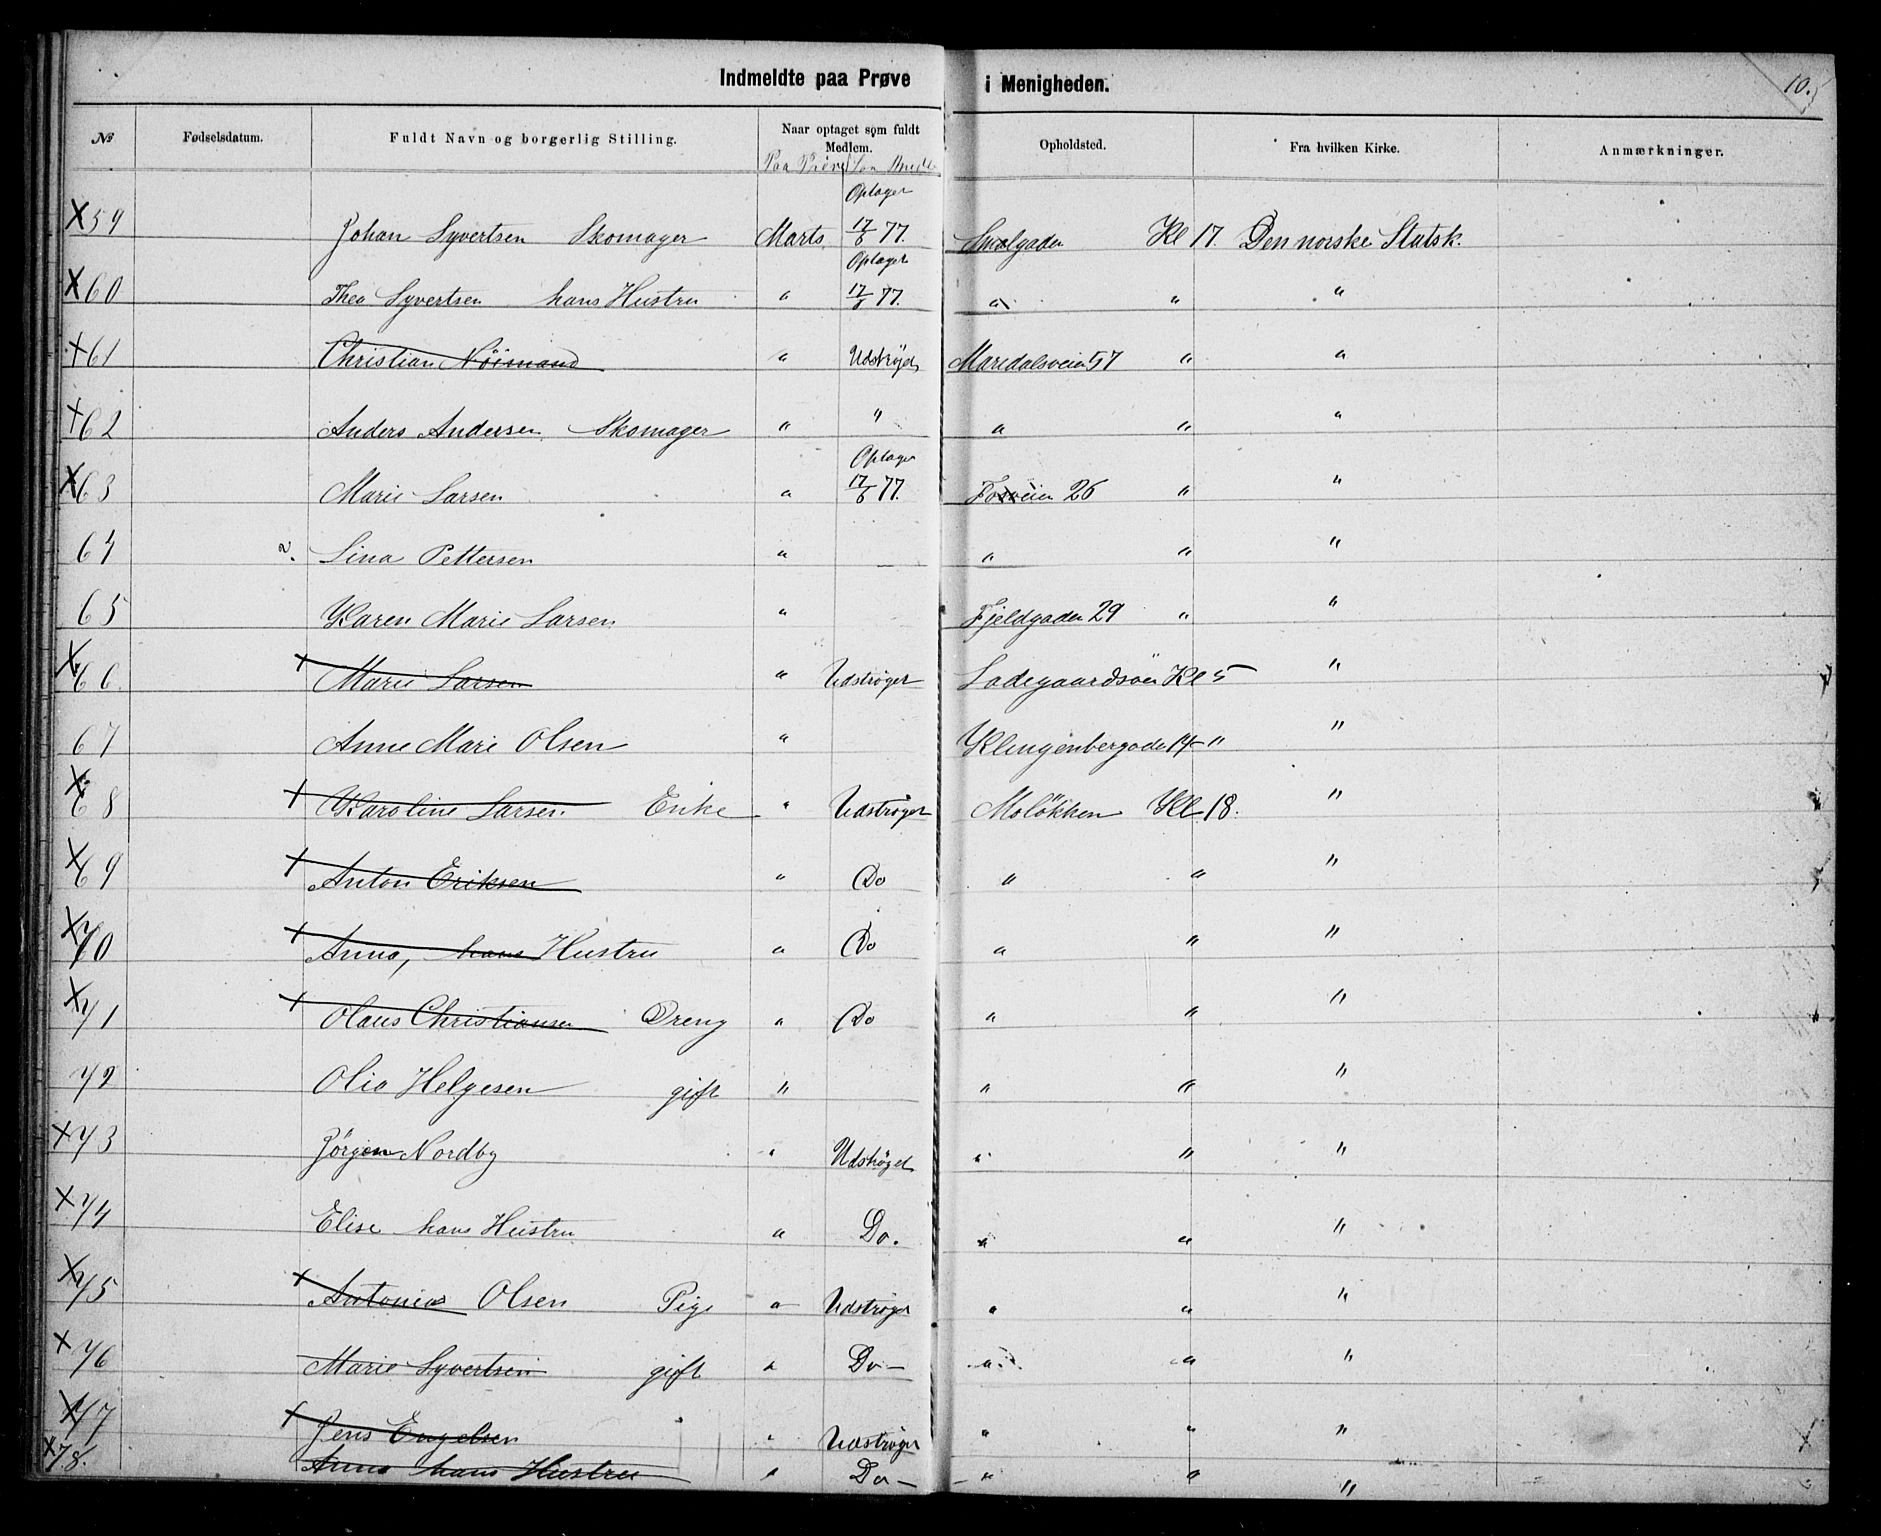 Indmeldte paa Prøve i Menigheden. 10.
№ Fødselsdatum. Fuldt Navn og borgerlig Stilling. Naar optaget som fuldt Medlem. Opholdsted. Fra hvilken Kirke. Anmærkninger.
Paa Prøve
Optaget
X 59 Johan Syvertsen Skomager Marts 17/6 77. Smalgaden Kl 17. Den norske Statsk.
Optaget
X 60 Thea Syvertsen hans Hustru " 17/6 77. " " "
+ 61 Christian Nöimand " Udströget Maridalsveien 57 " "
+ 62 Anders Andersen Skomager " " " " "
Optaget
X 63 Marie Larsen " 17/6 77. Fosveien 26 " "
64 2. Lina Pettersen " " " "
65 Karen Marie Larsen " Fjeldgaden 29 " "
X 66. + Marie Larsen " Udströget Ladegaardsöen Kl 5 "
67 Anne Marie Olsen " Klingenberggade 14 " "
X 68 + Karoline Larsen Enke " Udströget Molökken Kl 18. "
X 69 + Anton Eriksen " Do " " "
X 70 + Anna, hans Hustru " Do " " "
X 71 + Olaus Christiansen Dreng " Do " " "
72 Olia Helgesen gift " " " "
X 73 Jörgen Nordby " Udströget " " "
X 74 Elise hans Hustru " Do. " " "
X 75 + Antonia Olsen Pige " Udströget " " "
X 76 Marie Syvertsen gift " Do — " " "
X 77 + Jens Engelsen " Udströget " " "
X 78. Anna hans Hustru " Do — " " "